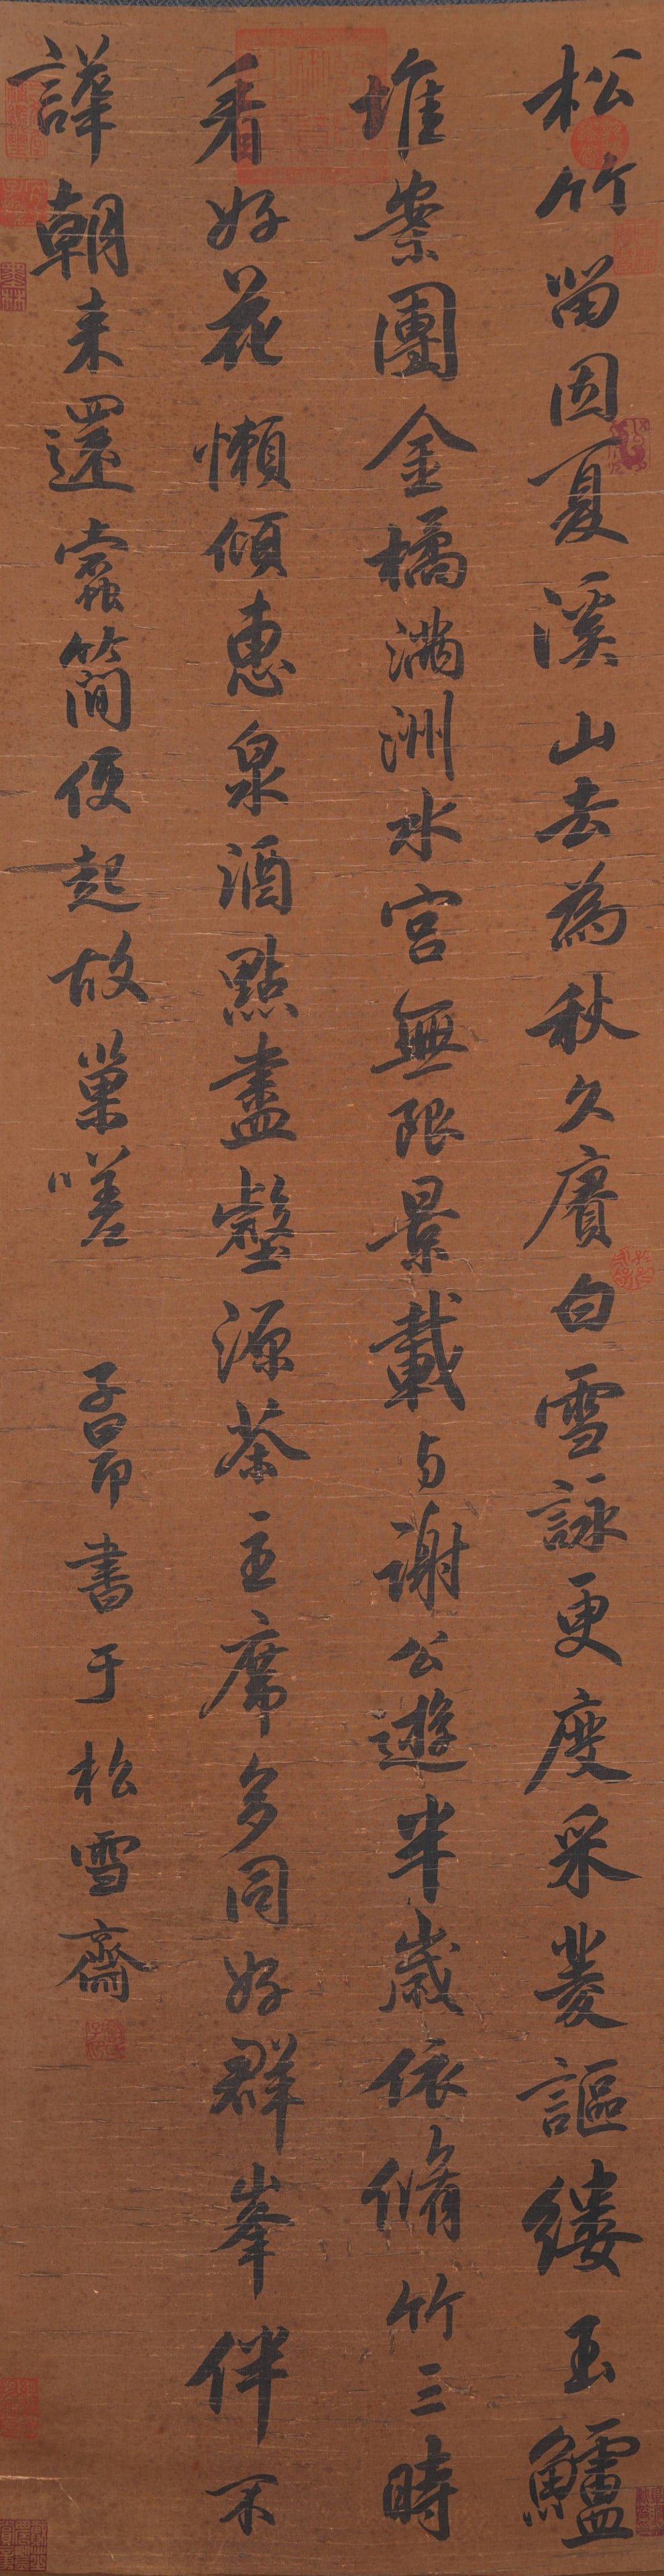 松竹留因夏溪山去為秋久賡白雪詠更度采菱謳縷玉鱸
堆案團金橘滿洲水宮無限景載与謝公遊半歲依脩竹三時
看好花懶傾惠泉酒點盡壑源茶主席多同好群峯伴不
譁朝来還蠹簡便起故巢嗟
子昂書于松雪齋